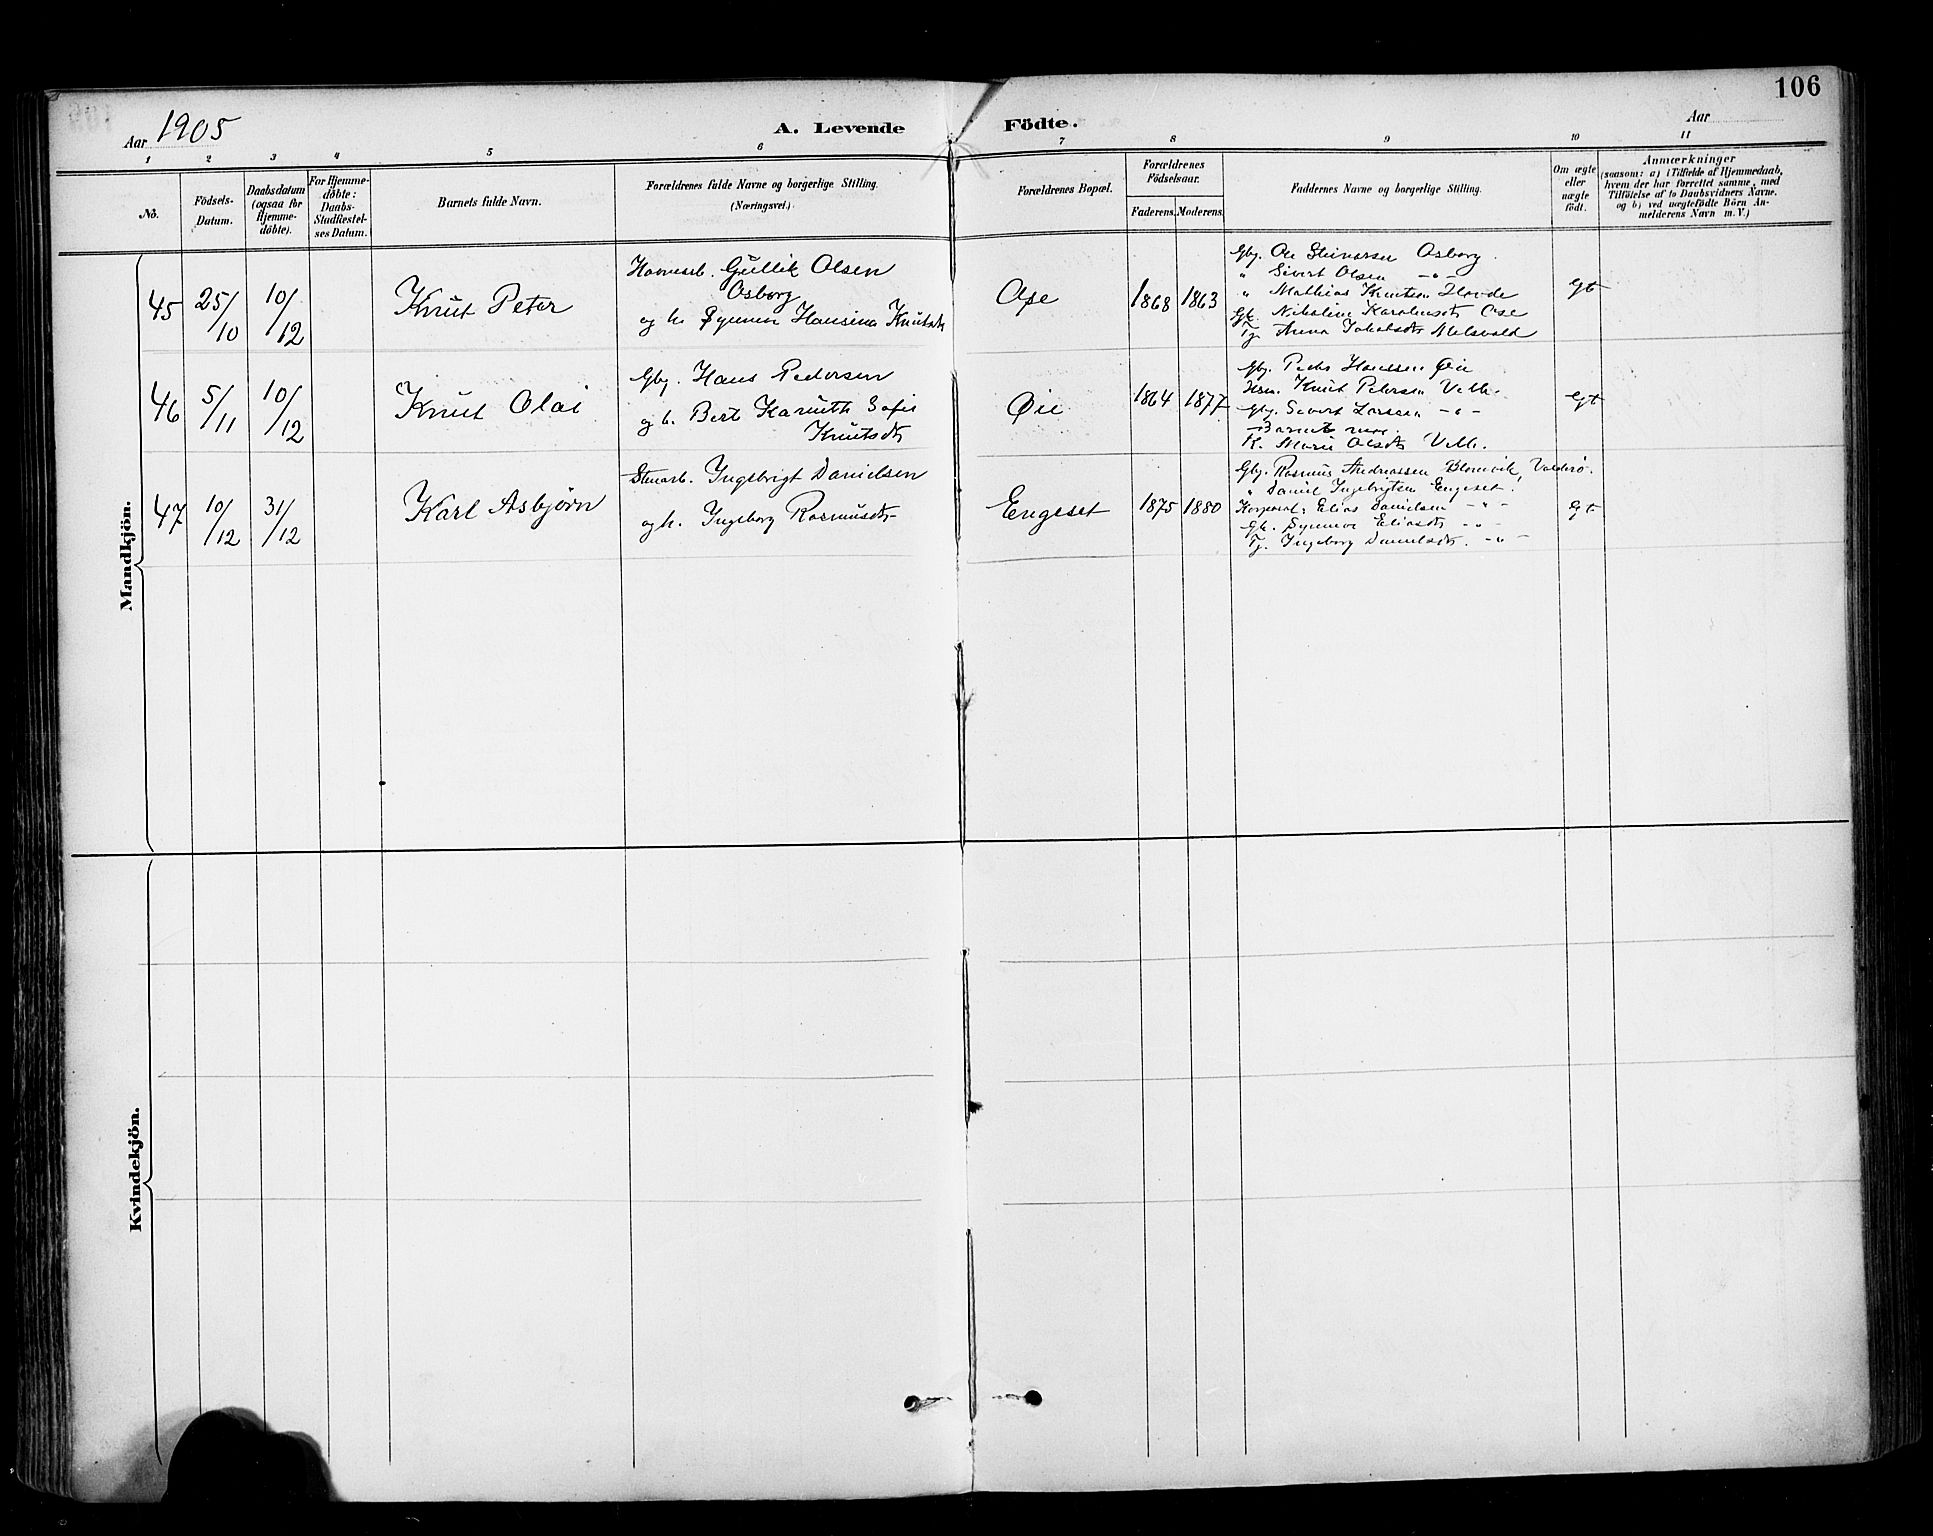 106
Aar 1905
A. Levende Födte.
Aar
1 2 3 4 5 6 7 8 9 10 11
No.
Födsels-
Datum.
Daabsdatum
(ogsaa för
Hjemme-
döbte).
For Hjemme-
döbte:
Daabs-
Stadfæstel-
ses Datum.
Barnets fulde Navn.
Forældrenes fulde Navne og borgerlige Stilling.
(Næringsvei.)
Forældrenes Bopæl.
Forældrenes
Födselsaar.
Faderens. Moderens.
Faddernes Navne og borgerlige Stilling.
Om ægte
eller
uægte
födt.
Anmærkninger
(saasom: a) i Tilfælde af Hjemmedaab,
hvem der har forrettet samme, med
Tilföielse af to Daabsvidners Navne.
og b) ved uægtefödte Börn An-
melderens Navn m. V.)
Mandkjön.
45 25/10 10/12
Knut Peter
Gullik Olsen
Osborg
og h. Synneva Hansina Knutsdt
Ose
1868 1863
Gby. Ole Steinarsen Osborg.
" Sivert Olsen -"-
" Mathias Knutsen Hovde
Gk. Nikoline Karolusdt Ose
Tj. Anna Jakobsdt
Egt
46 5/11 10/12
Knut Olai
Gby. Hans Pedersen
og h. Bert Karinth Sofie
Knutsdt
Øie
1864 1877
Gby. Peder Hanssen Øie
Knut Petersen Velle.
Gby. Sivert Larssen -"-
Barnets mor.
K. Marie Olsdt Velle.
Egt
47 10/12 31/12
Karl Asbjørn
Stenarb. Ingebrigt Danielsen
og h. Ingeborg Rasmusdt
Engeset
1875 1880
Gby. Rasmus Andreassen Blomvik, Valderø.
" Daniel Ingebrigtsen Engeset.
Korporal: Elias Danielsen -"-
Gk. Synneve Eliasdt -"-
Tj. Ingeborg Danielsdt. -"-
Egt
Kvindekjön.